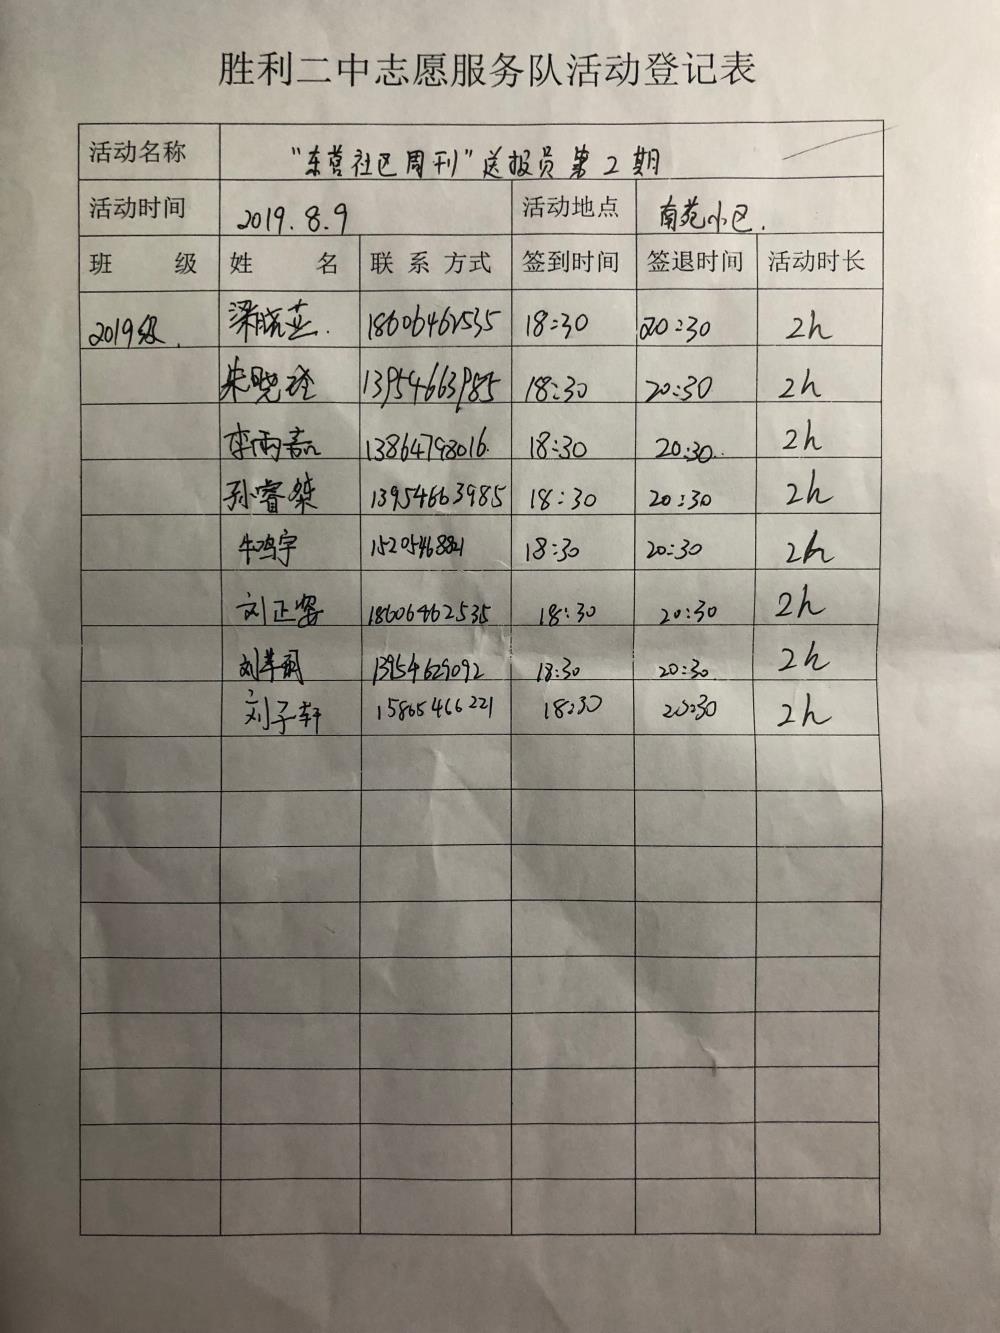 胜利二中志愿服务队活动登记表
活动名称 “东营社区周刊”送报员第2期
活动时间 2019.8.9 活动地点 南苑小区.
班 级 姓 名 联 系 方式 签到时间 签退时间 活动时长
2019级. 梁晓燕. 18606462535 18:30 20:30 2h
朱晓 13954663985 18:30 20:30 2h
李雨嘉 13864798016. 18:30 20:30.. 2h
孙睿桀 13954663985 18:30 20:30 2h
牛鸿宇 15205468821 18:30 20:30 2h
刘正 18606462535 18:30 20:30 2h
刘 13954629092 18:30 20:30. 2h
刘子轩 15865466221 18:30 20:30 2h